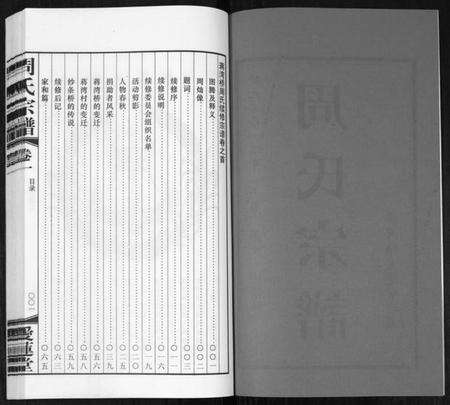 蒋湾桥周氏续修宗谱卷之首
图腾及释义 〇〇一
周灿像 〇〇二
题词 〇〇三
续修序 〇一一
续修说明 〇一六
续修委员会组织名单 〇一九
活动剪影 〇二〇
人物春秋 〇二五
捐助者风采 〇三九
蒋湾桥的变迁 〇五六
蒋湾村的变迁 〇五八
纱条桥的传说 〇五九
续修后记 〇六三
家和篇 〇六五
周氏宗谱
卷一
目录
〇〇一
爱莲堂
周氏宗谱